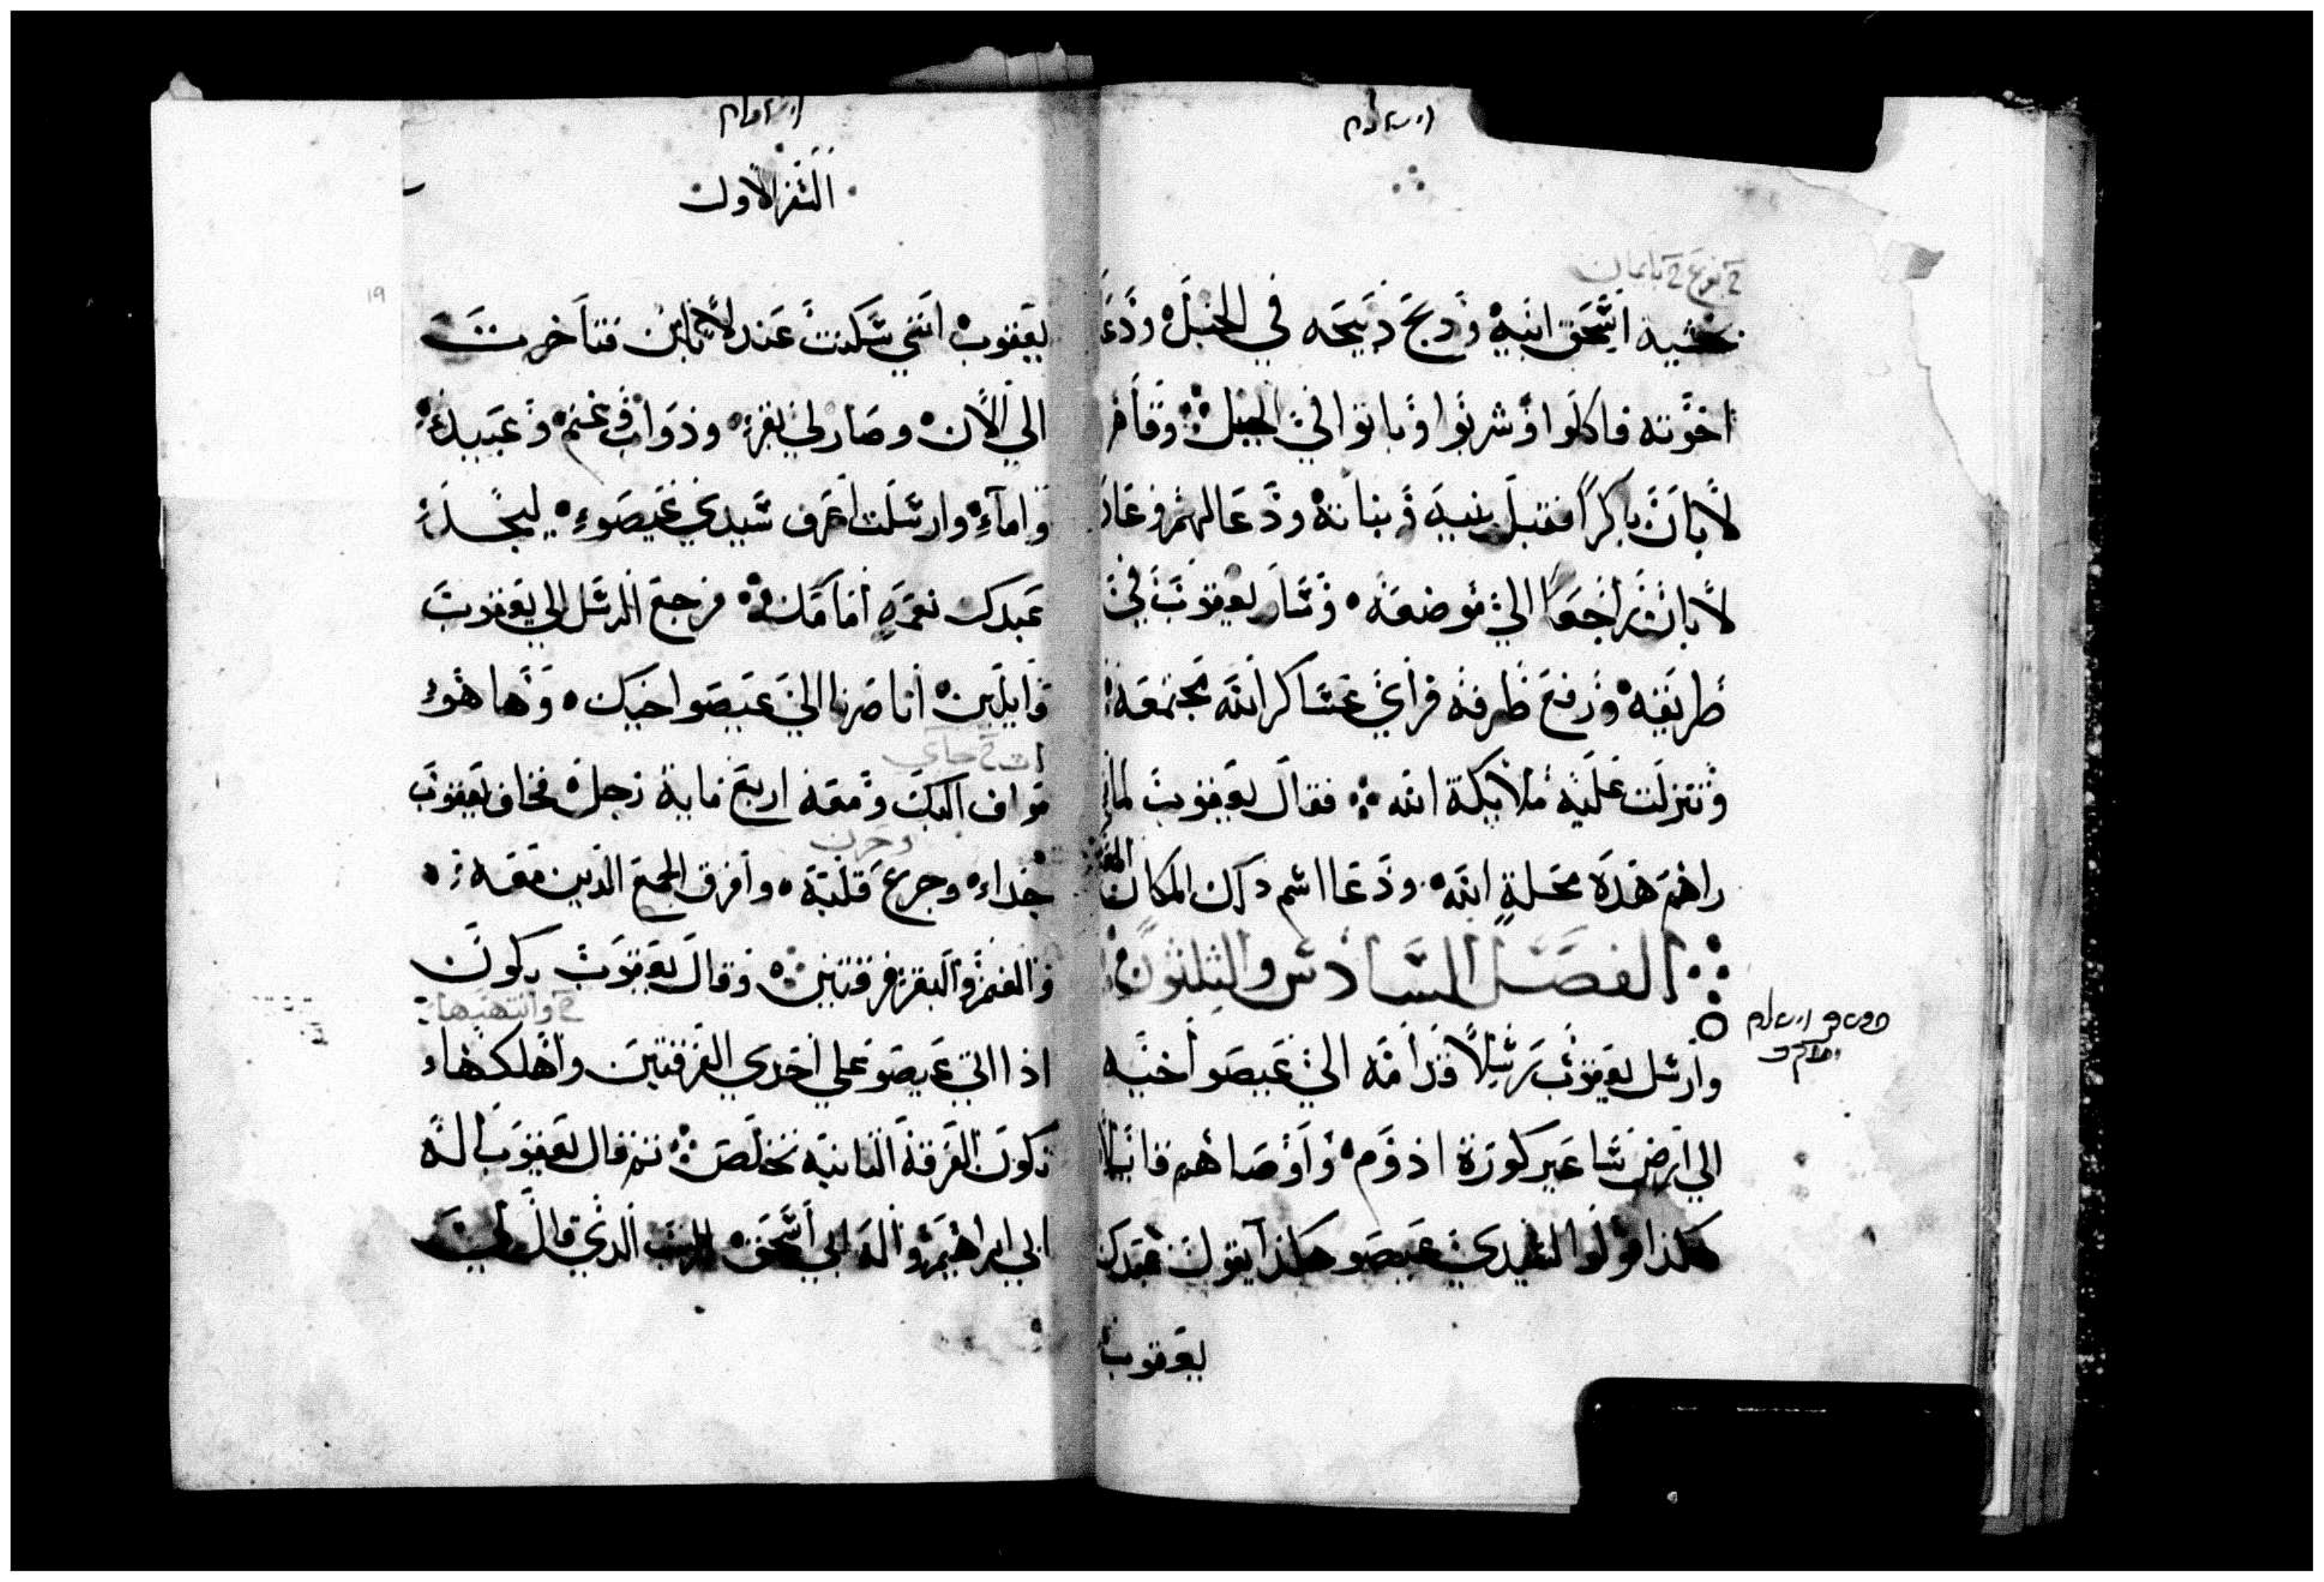 بخشية اسحق ابيه وذبح ذبيحه في الجبل ودعا
اخوته فاكلوا وشربوا وباتوا في الجبل وقام
لابان باكرا فقبل بنيه وبناته ودعا لهم وعاد
لابان راجعا الي موضعه وسار يعقوب في
طريقه ورفع طرفه فراي عساكر الله مجتمعه
وتنزلت عليه ملايكة الله فقال يعقوب لما
راهم هذه محلة الله ودعا اسم ذلك المكان
الفصل السادس والثلثون
وارسل يعقوب رسلا قدامه الي عيصو اخيه
الي ارض ساعير كورة ادوم واوصاهم قايلا
هكذا قولوا لسيدي عيصو هكذا يقول عبدك
يعقوب
السفر الاول
يعقوب انني سكنت عند لابان فتاخرت
الي الان وصار لي بقر ودواب وغنم وعبيد
واماء وارسلت اعرف سيدي عيصو ليجد
عبدك نعمة امامك فرجع الرسل الي يعقوب
قايلين انا صرنا الي عيصو اخيك وها هو
مواف اليك ومعه اربع ماية رجل فخاف يعقوب
وحزن
جداء وجرع قلبه وافرق الجمع الذين معه
والغنم والبقر فرقتين وقال يعقوب يكون
اذا اتي عيصو علي احدي الفرقتين واهلكها
تكون الفرقة الثانية تخلص ثم قال يعقوب اله
ابي ابراهيم واله ابي اسحق الرب الذي قال لي